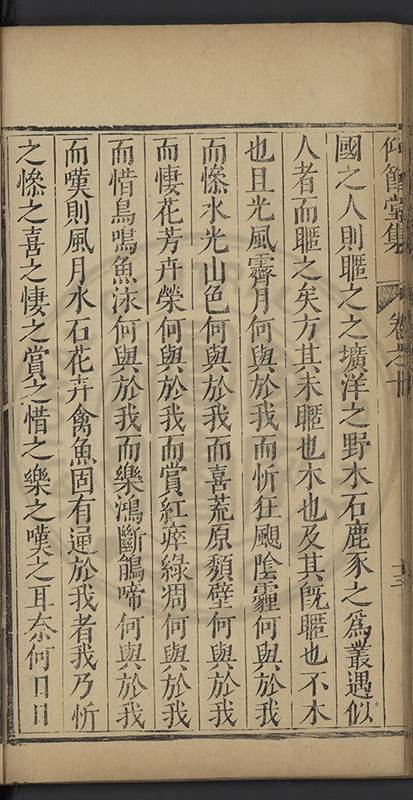 仰節堂集
卷之十
十三
國之人則暱之之壙洋之野木石鹿豕之爲叢遇似
人者而暱之矣方其未暱也木也及其旣暱也不木
也且光風霽月何與於我而忻狂颶陰霾何與於我
而慘水光山色何與於我而喜荒原頽壁何與於我
而悽花芳卉榮何與於我而賞紅瘁綠凋何與於我
而惜鳥鳴魚泳何與於我而樂鴻斷鵑啼何與於我
而嘆則風月水石花卉禽魚固有通於我者我乃忻
之慘之喜之悽之賞之惜之樂之嘆之耳奈何日日